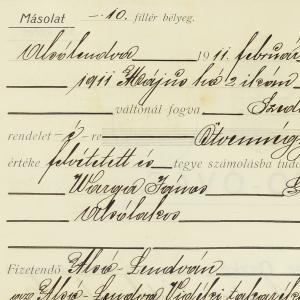 Másolat
10. fillér bélyeg.
Alsólendva 1911. február
1911 Május hó 2 ikán
váltonál fogva Szedl
rendelet é re Ötvennégy
értéke felvétetett és tegye számolásba tuda
Warga János
Alsólakos
Fizetendő Alsó-Lendván
az Alsó-Lendva Vidéki takarék